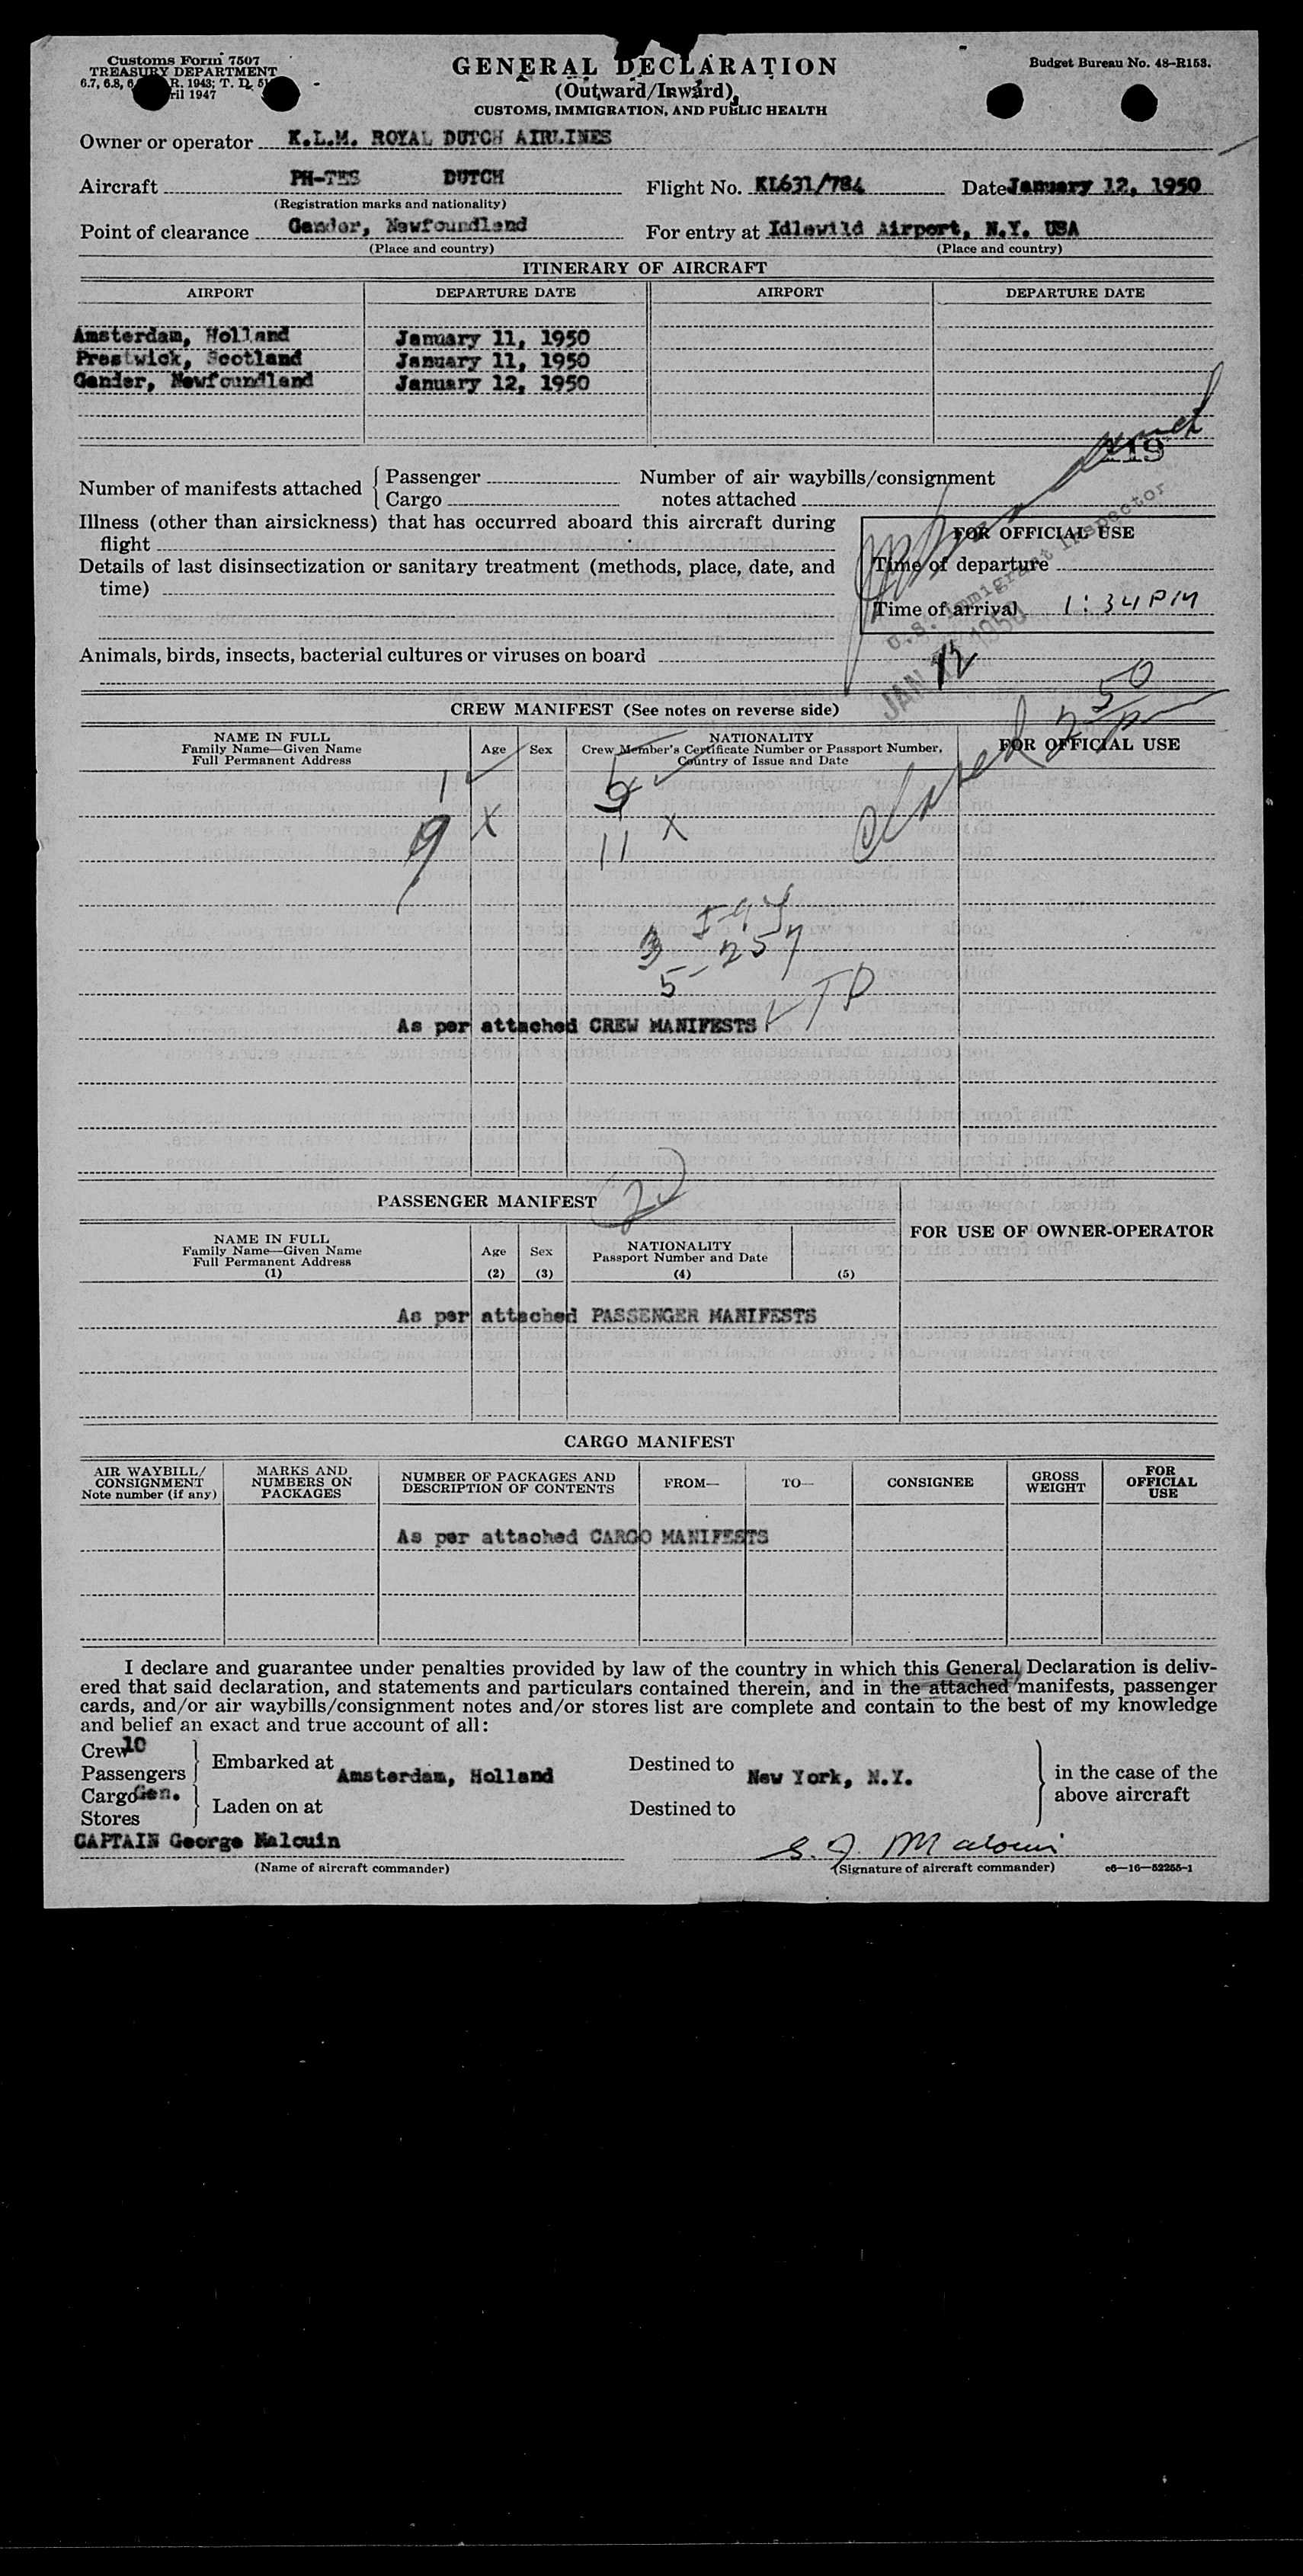 Customs Form 7507
TREASURY DEPARTMENT
GENERAL DECLARATION
(Outward/Inward)
CUSTOMS, IMMIGRATION, AND PUBLIC HEALTH
Budget Bureau No. 48-R153.
Owner or operator K.L.M. ROYAL DUTCH AIRLINES
Aircraft PH-TES DUTCH Flight No. KL631/784 Date January 12, 1950
(Registration marks and nationality)
Point of clearance Gander, Newfoundland For entry at Idlewild Airport, N.Y. USA
(Place and country) (Place and country)
ITINERARY OF AIRCRAFT
AIRPORT DEPARTURE DATE AIRPORT DEPARTURE DATE
Amsterdam, Holland January 11, 1950
Prestwick, Scotland January 11, 1950
Gander, Newfoundland January 12, 1950
119
Number of manifests attached { Passenger
Cargo
Number of air waybills/consignment
notes attached
Illness (other than airsickness) that has occurred aboard this aircraft during
flight
Details of last disinsectization or sanitary treatment (methods, place, date, and
time)
FOR OFFICIAL USE
Time of departure
Time of arrival 1:34 PM
U.S. Immigrant Inspector
JAN 12 1950
Animals, birds, insects, bacterial cultures or viruses on board
CREW MANIFEST (See notes on reverse side)
NAME IN FULL
Family Name—Given Name
Full Permanent Address
Age Sex
NATIONALITY
Crew Member's Certificate Number or Passport Number,
Country of Issue and Date
FOR OFFICIAL USE
1
9 X 11 X
As per attached CREW MANIFESTS
PASSENGER MANIFEST 20
NAME IN FULL
Family Name—Given Name
Full Permanent Address
(1)
Age
(2)
Sex
(3)
NATIONALITY
Passport Number and Date
(4) (5)
FOR USE OF OWNER-OPERATOR
As per attached PASSENGER MANIFESTS
CARGO MANIFEST
AIR WAYBILL/
CONSIGNMENT
Note number (if any)
MARKS AND
NUMBERS ON
PACKAGES
NUMBER OF PACKAGES AND
DESCRIPTION OF CONTENTS
FROM— TO— CONSIGNEE
GROSS
WEIGHT
FOR
OFFICIAL
USE
As per attached CARGO MANIFESTS
I declare and guarantee under penalties provided by law of the country in which this General Declaration is deliv-
ered that said declaration, and statements and particulars contained therein, and in the attached manifests, passenger
cards, and/or air waybills/consignment notes and/or stores list are complete and contain to the best of my knowledge
and belief an exact and true account of all:
Crew 10
Passengers } Embarked at Amsterdam, Holland Destined to New York, N.Y.
Cargo Gen.
Stores } Laden on at Destined to
} in the case of the
above aircraft
CAPTAIN George Malouin
(Name of aircraft commander)
G. J. Malouin
(Signature of aircraft commander) c6—16—52255-1